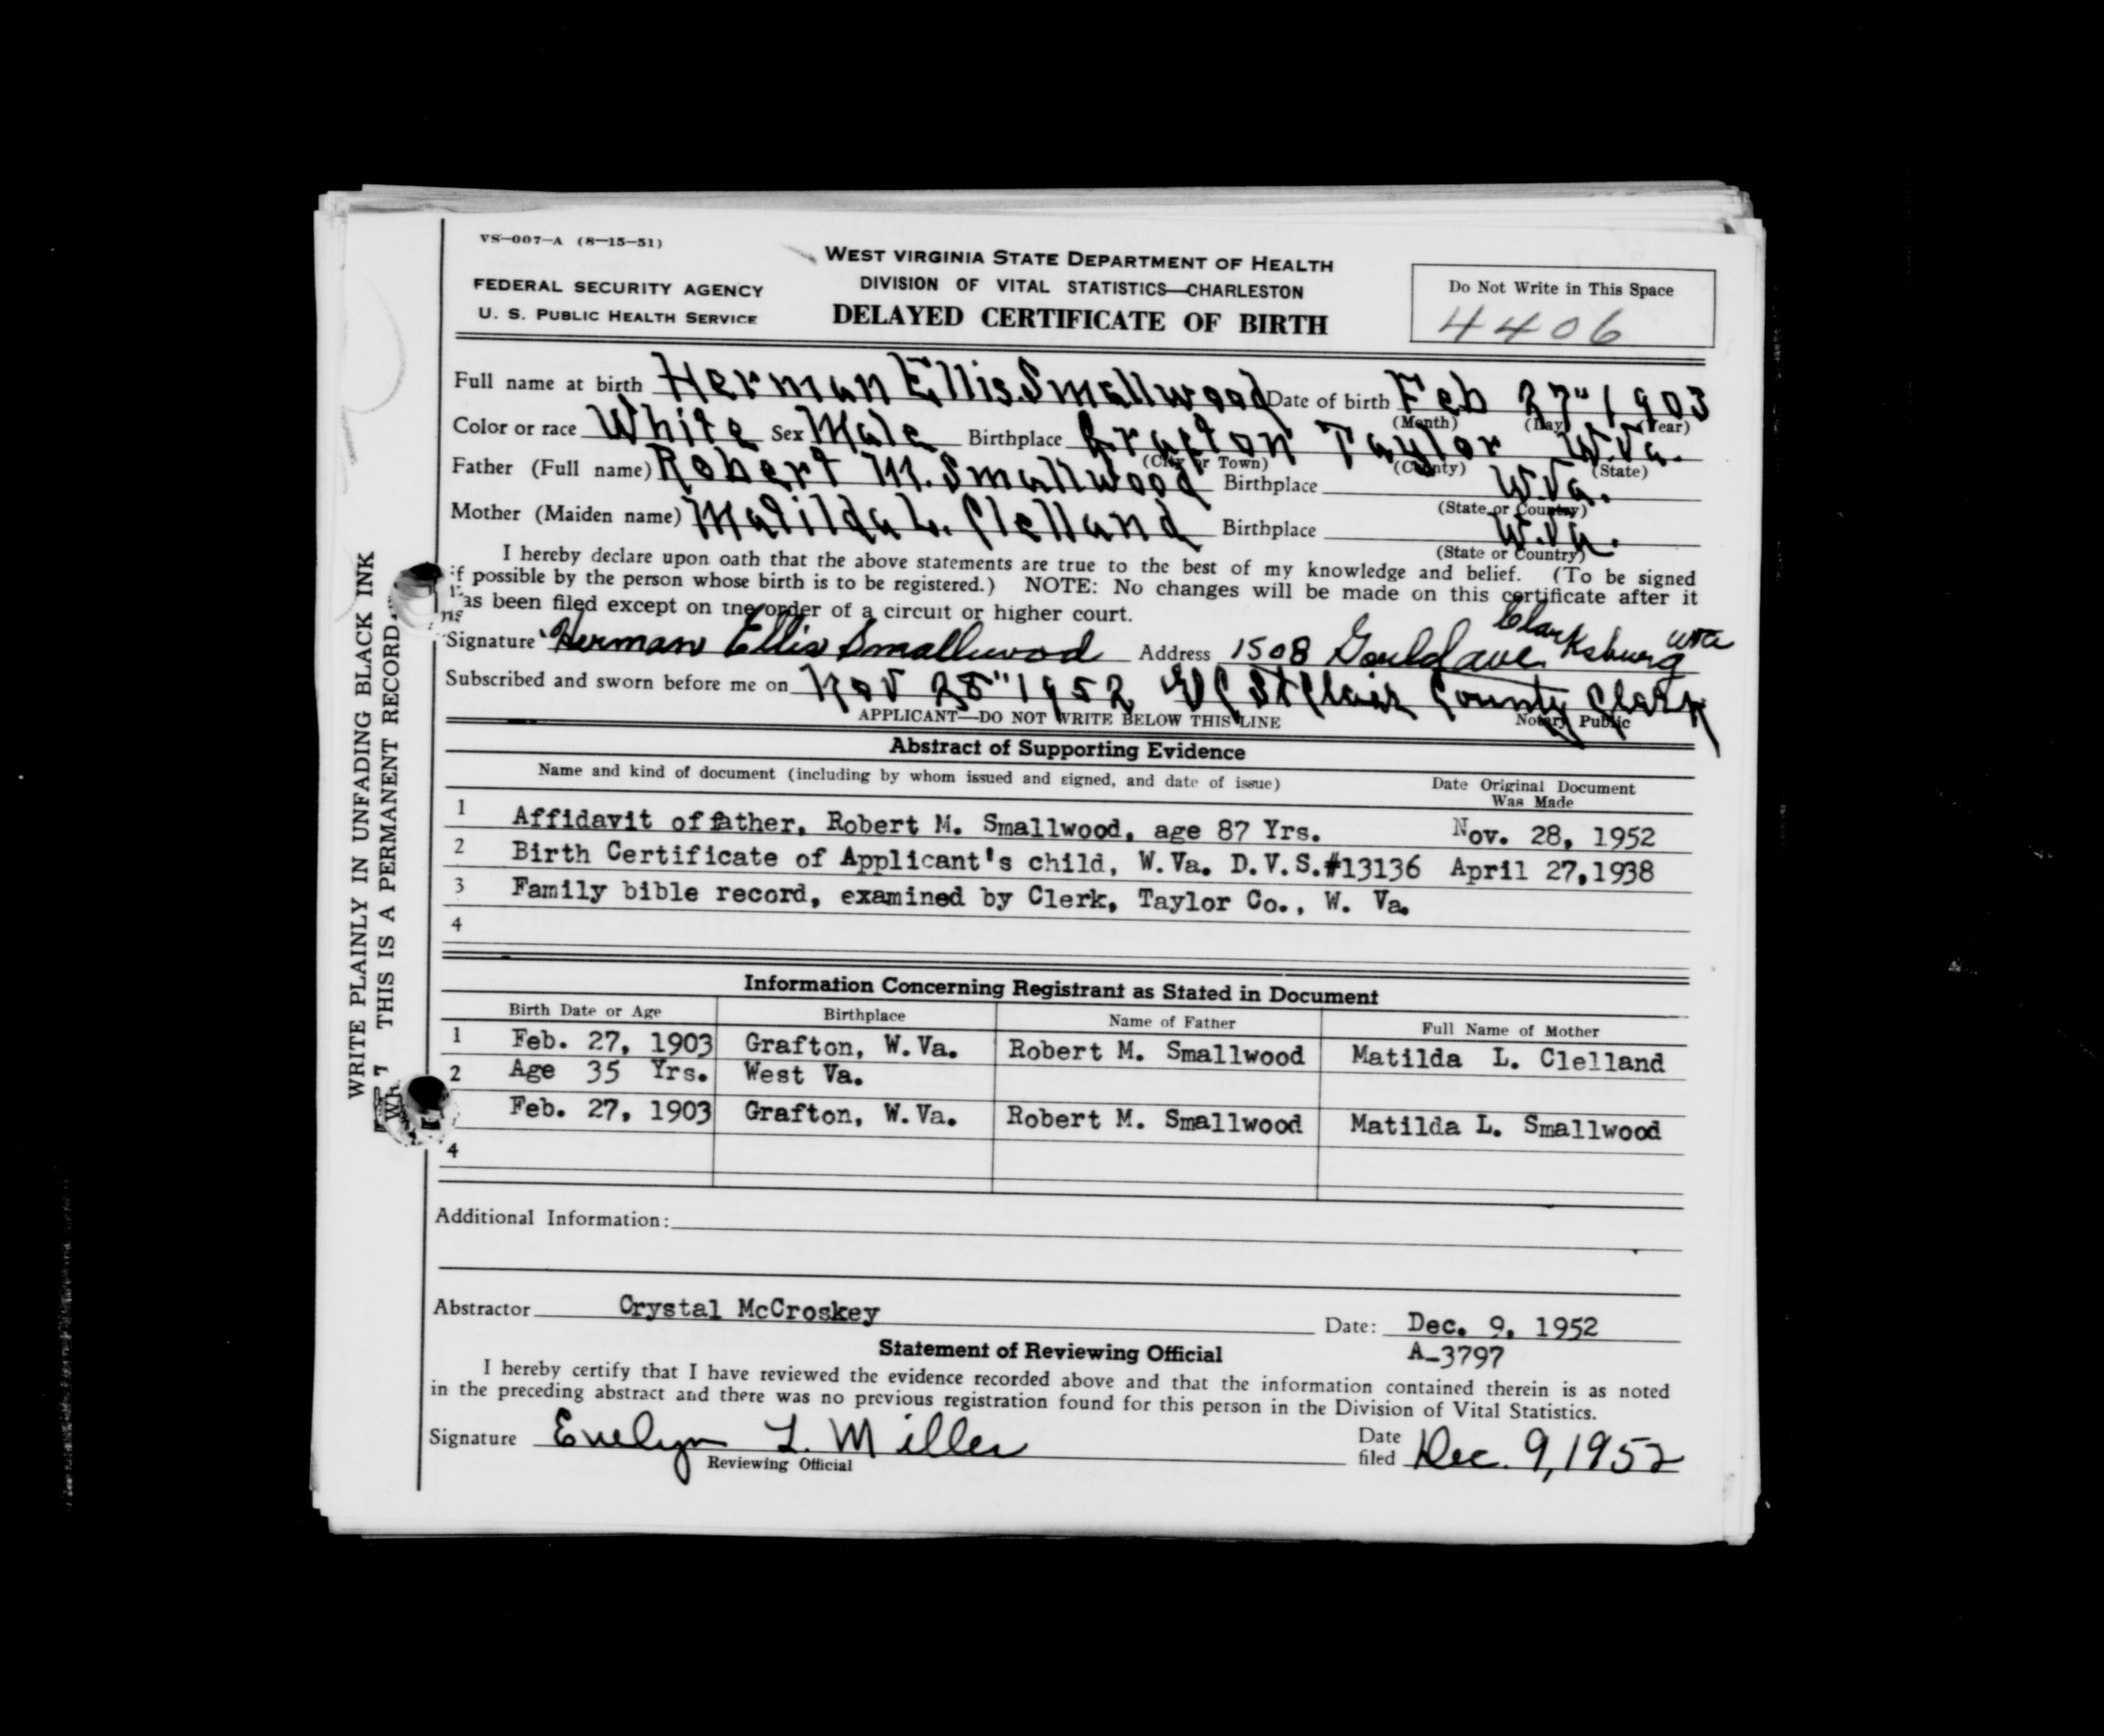 VS-007-A (8-15-51)
FEDERAL SECURITY AGENCY
U. S. PUBLIC HEALTH SERVICE
WEST VIRGINIA STATE DEPARTMENT OF HEALTH
DIVISION OF VITAL STATISTICS—CHARLESTON
DELAYED CERTIFICATE OF BIRTH
Do Not Write in This Space
4406
Full name at birth Herman Ellis Smallwood Date of birth Feb 27" 1903
(Month) (Day) (Year)
Color or race White Sex Male Birthplace Grafton Taylor W.Va.
(City or Town) (County) (State)
Father (Full name) Robert M. Smallwood Birthplace W.Va.
(State or Country)
Mother (Maiden name) Matilda L. Clelland Birthplace W.Va.
(State or Country)
I hereby declare upon oath that the above statements are true to the best of my knowledge and belief. (To be signed
if possible by the person whose birth is to be registered.) NOTE: No changes will be made on this certificate after it
has been filed except on the order of a circuit or higher court.
Signature Herman Ellis Smallwood Address 1508 Gould ave. Clarksburg WVa
Subscribed and sworn before me on Nov 28" 1952 St Clair County Clerk
APPLICANT—DO NOT WRITE BELOW THIS LINE Notary Public
Abstract of Supporting Evidence
Name and kind of document (including by whom issued and signed, and date of issue) Date Original Document
Was Made
1 Affidavit of father, Robert M. Smallwood, age 87 Yrs. Nov. 28, 1952
2 Birth Certificate of Applicant's child, W.Va. D.V.S.#13136 April 27,1938
3 Family bible record, examined by Clerk, Taylor Co., W. Va.
4
Information Concerning Registrant as Stated in Document
Birth Date or Age Birthplace Name of Father Full Name of Mother
1 Feb. 27, 1903 Grafton, W.Va. Robert M. Smallwood Matilda L. Clelland
2 Age 35 Yrs. West Va.
Feb. 27, 1903 Grafton, W.Va. Robert M. Smallwood Matilda L. Smallwood
4
Additional Information:
Abstractor Crystal McCroskey Date: Dec. 9, 1952
Statement of Reviewing Official A-3797
I hereby certify that I have reviewed the evidence recorded above and that the information contained therein is as noted
in the preceding abstract and there was no previous registration found for this person in the Division of Vital Statistics.
Signature Evelyn L. Miller Date filed Dec. 9, 1952
Reviewing Official
WRITE PLAINLY IN UNFADING BLACK INK
THIS IS A PERMANENT RECORD.